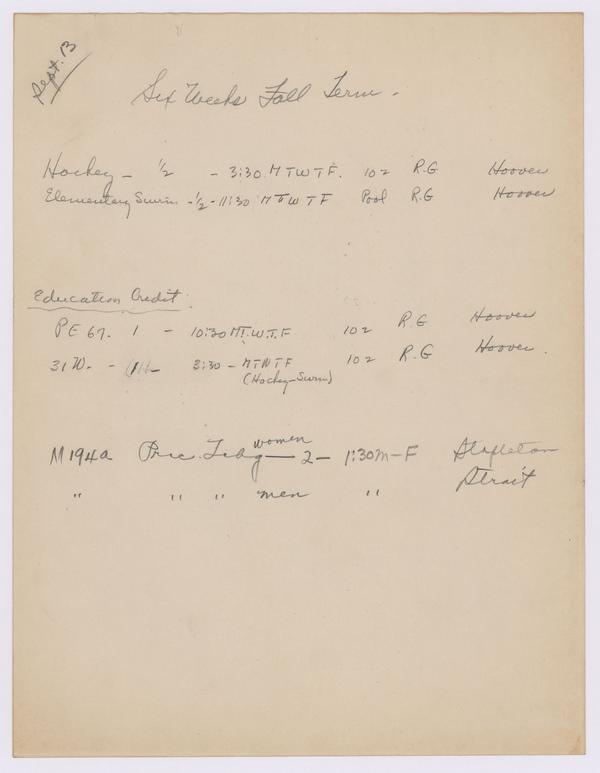 Sept. 13
Six Weeks Fall Term -
Hockey - 1/2 - 3:30 M T W T F. 102 R.G Hoover
Elementary Swim - 1/2 - 11:30 M T W T F Pool R.G Hoover
Education Credit.
PE 67. 1 - 10:30 M.T.W.T.F 102 R.G Hoover
31 W. - - 3:30 - M T W T F 102 R.G Hoover.
(Hockey-Swim)
women
M 194a Prac. Tchg - 2 - 1:30 M-F Stapleton
" " " men " Strait